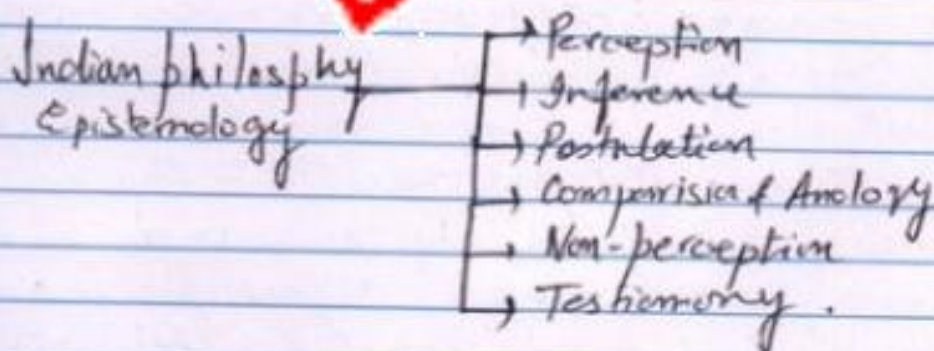 Indian philosphy
Epistemology
Perception
Inference
Postulation
Comparision & Anology
Non-perception
Testiomony.